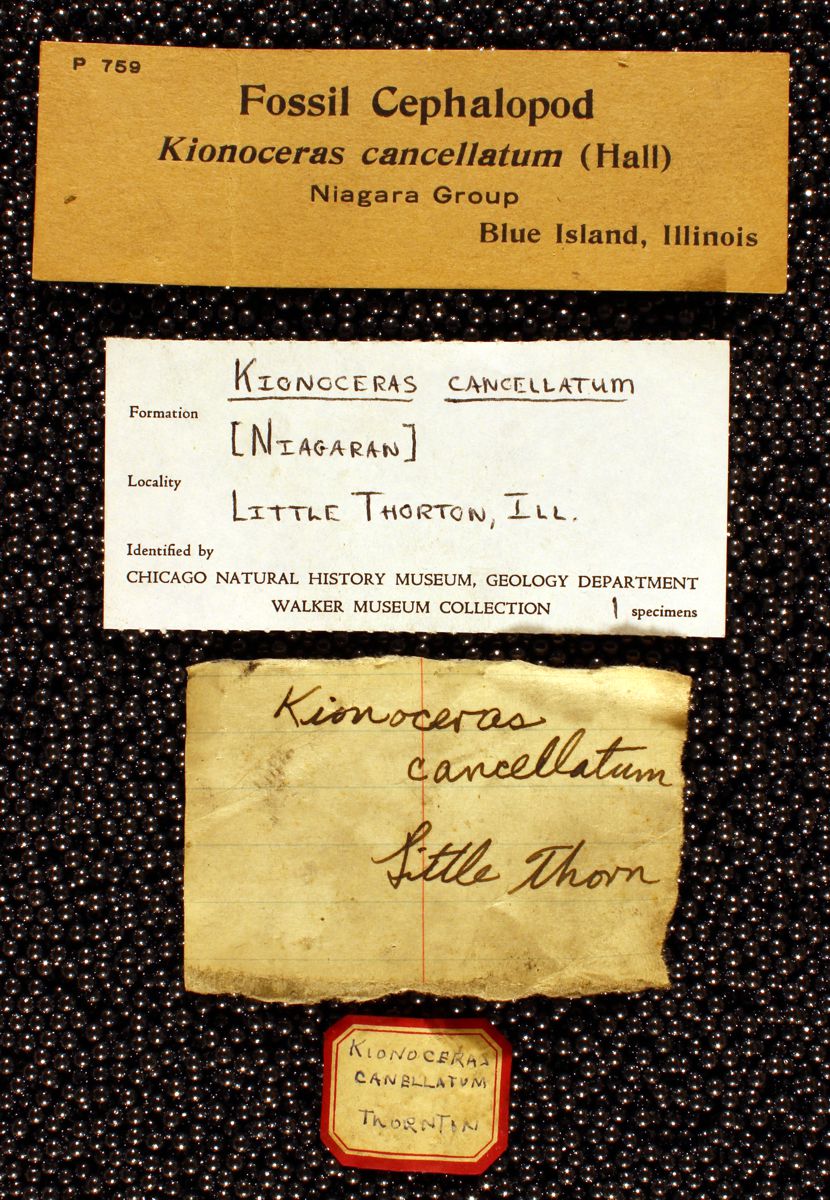 P 759
Fossil Cephalopod
Kionoceras cancellatum (Hall)
Niagara Group
Blue Island, Illinois
KIONOCERAS CANCELLATUM
Formation
[NIAGARAN]
Locality
LITTLE THORTON, ILL.
Identified by
CHICAGO NATURAL HISTORY MUSEUM, GEOLOGY DEPARTMENT
WALKER MUSEUM COLLECTION 1 specimens
Kionoceras
cancellatum
Little Thorn
KIONOCERAS
CANELLATUM
THORNTIN